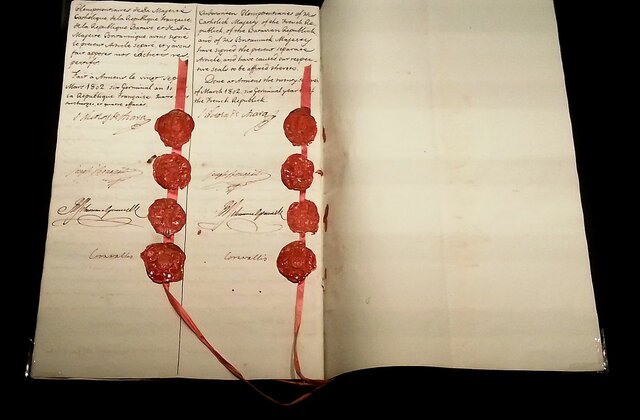 Plenipotentiaires de Sa Majesté
Catholique de la République Française
de la République Batave et de Sa
Majesté Britannique avons signé
le présent Article séparé et y avons
fait apposer nos cachets res
pectifs.
Fait à Amiens le vingt sept
Mars 1802. six Germinal an 10
la République Française
surcharges, et quatre
J. Nicolas de Azara
Joseph Bonaparte
R J Schimmelpenninck
Cornwallis
Plenipotentiaries of His
Catholick Majesty of the French Re
publick of the Batavian Republick
and of His Britannick Majesty
have signed the present separate
Article and have caused our respec
tive seals to be affixed thereto.
Done at Amiens the twenty
of March 1802. six Germinal year
the French Republick
J. Nicolas de Azara
Joseph Bonaparte
R J Schimmelpenninck
Cornwallis